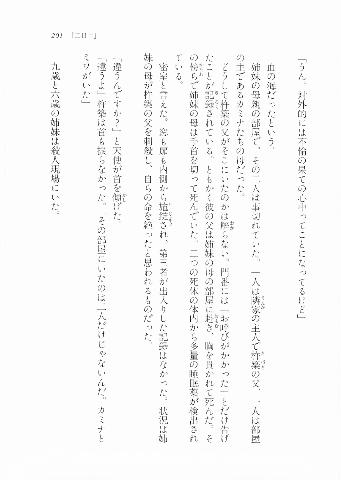 201　［二日目］
「うん。対外的には不倫の果ての心中ってことになってるけど」
血の海だったという。
姉妹の母親の部屋で、その二人は事切れていた。一人は隣家の主人で杵築の父、一人は部屋
の主であるカミナたちの母だった。
どうして杵築の父がそこにいたのかは解らない。門番には「お呼びがかかった」とだけ告げ
たことが記録されている。ともかく彼の父は姉妹の母の部屋に赴き、胸を貫かれて死んだ。そ
の傍らで姉妹の母は手首を切って死んでいた。二つの死体の体内から多量の睡眠薬が検出され
ている。
密室と言えた。窓も扉も内側から施錠され、第三者が出入りした記録はなかった。状況は姉
妹の母が杵築の父を刺殺し、自らの命を絶ったと思われるものだった。
「違うんですか？」と天使が首を傾げた。
「違うよ」杵築は首も振らなかった。「その部屋にいたのは二人だけじゃないんだ。カミナと
ミワがいた」
九歳と六歳の姉妹は殺人現場にいた。